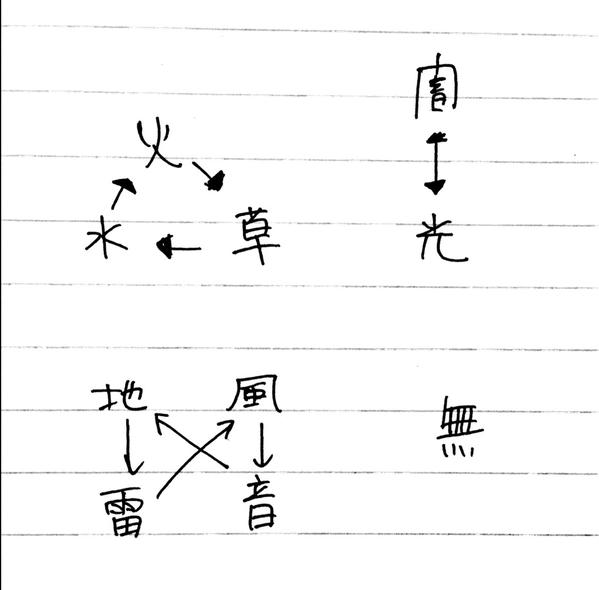 闇
火
水 草 光
地 風
無
雷 音